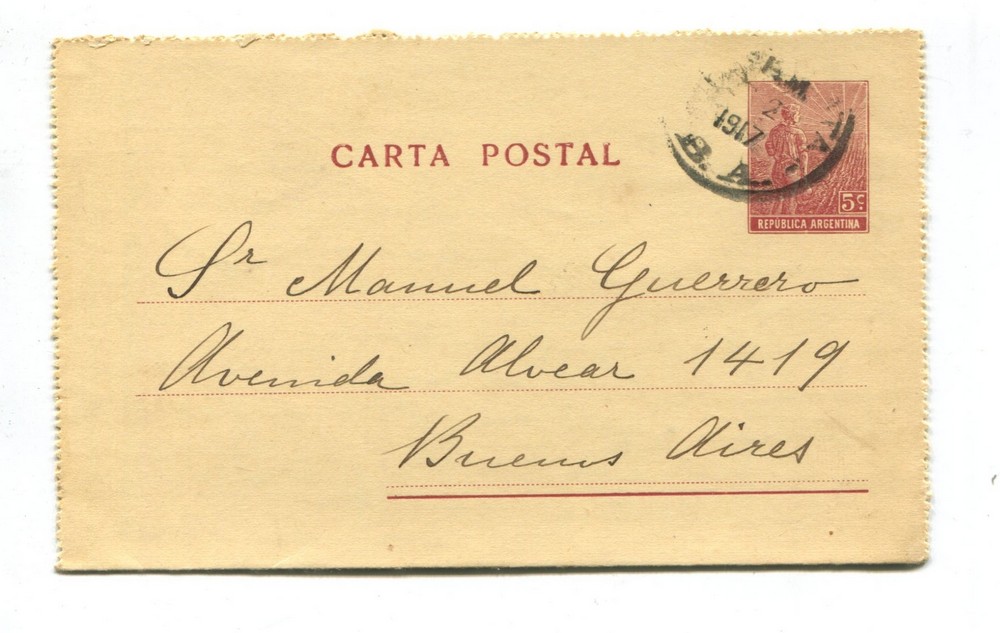 CARTA POSTAL
P.M.
2
1917
B. A.
5c.
REPÚBLICA ARGENTINA
Sr Manuel Guerrero
Avenida Alvear 1419
Buenos Aires